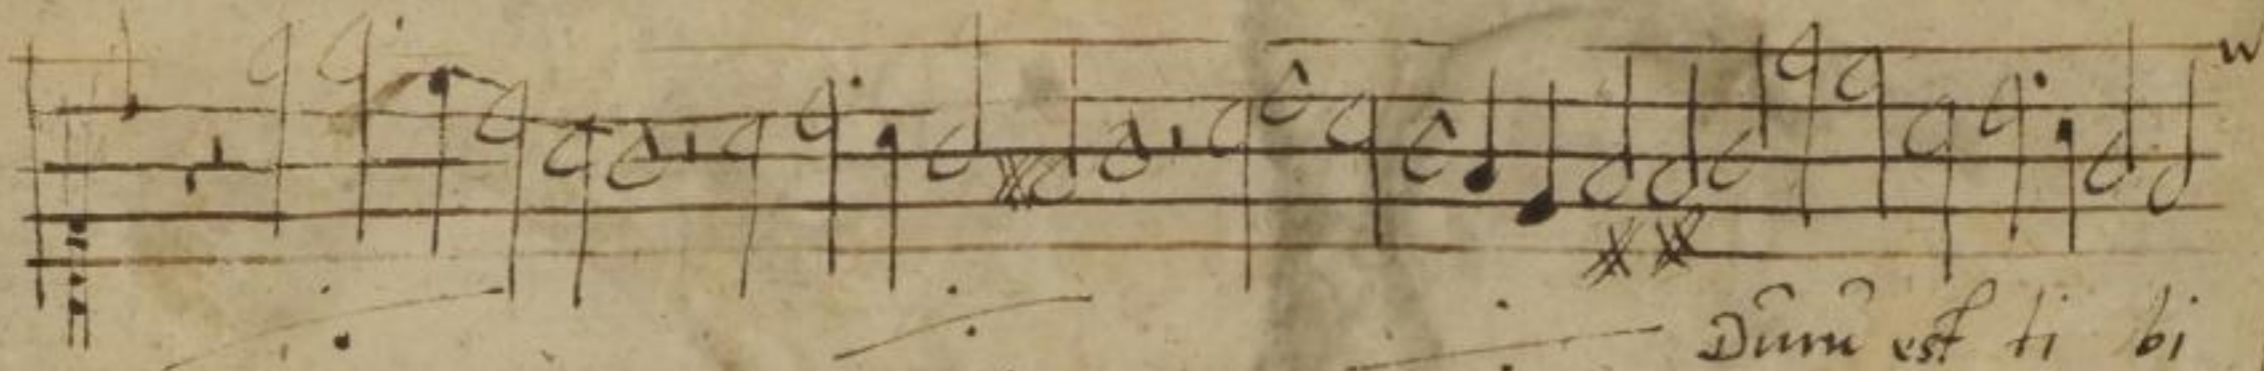 Durũ est ti bi